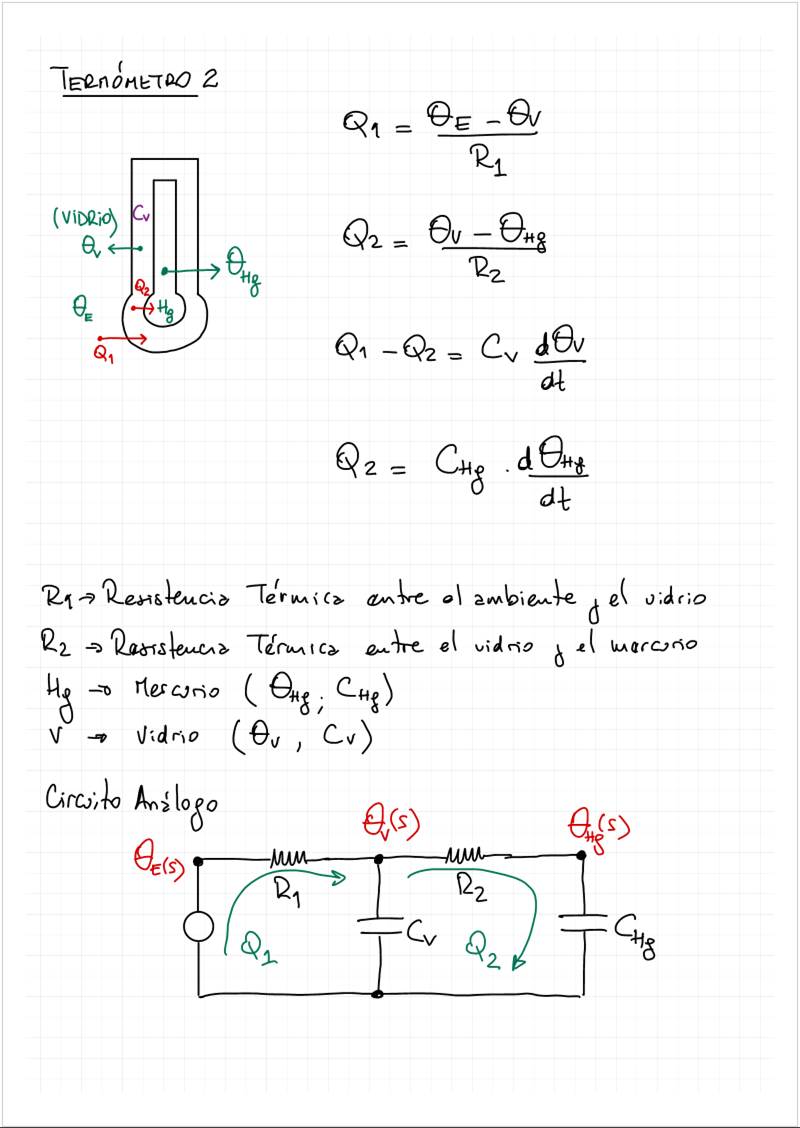 TERMÓMETRO 2
Q1 = θE − θV / R1
(VIDRIO)
CV
θV
θHg
Q2
Hg
θE
Q1
Q2 = θV − θHg / R2
Q1 − Q2 = CV dθV / dt
Q2 = CHg . dθHg / dt
R1 → Resistencia Térmica entre el ambiente y el vidrio
R2 → Resistencia Térmica entre el vidrio y el mercurio
Hg → Mercurio (θHg ; CHg)
V → Vidrio (θV , CV)
Circuito Análogo
θE(s)
θV(s)
θHg(s)
R1
R2
Q1
CV
Q2
CHg